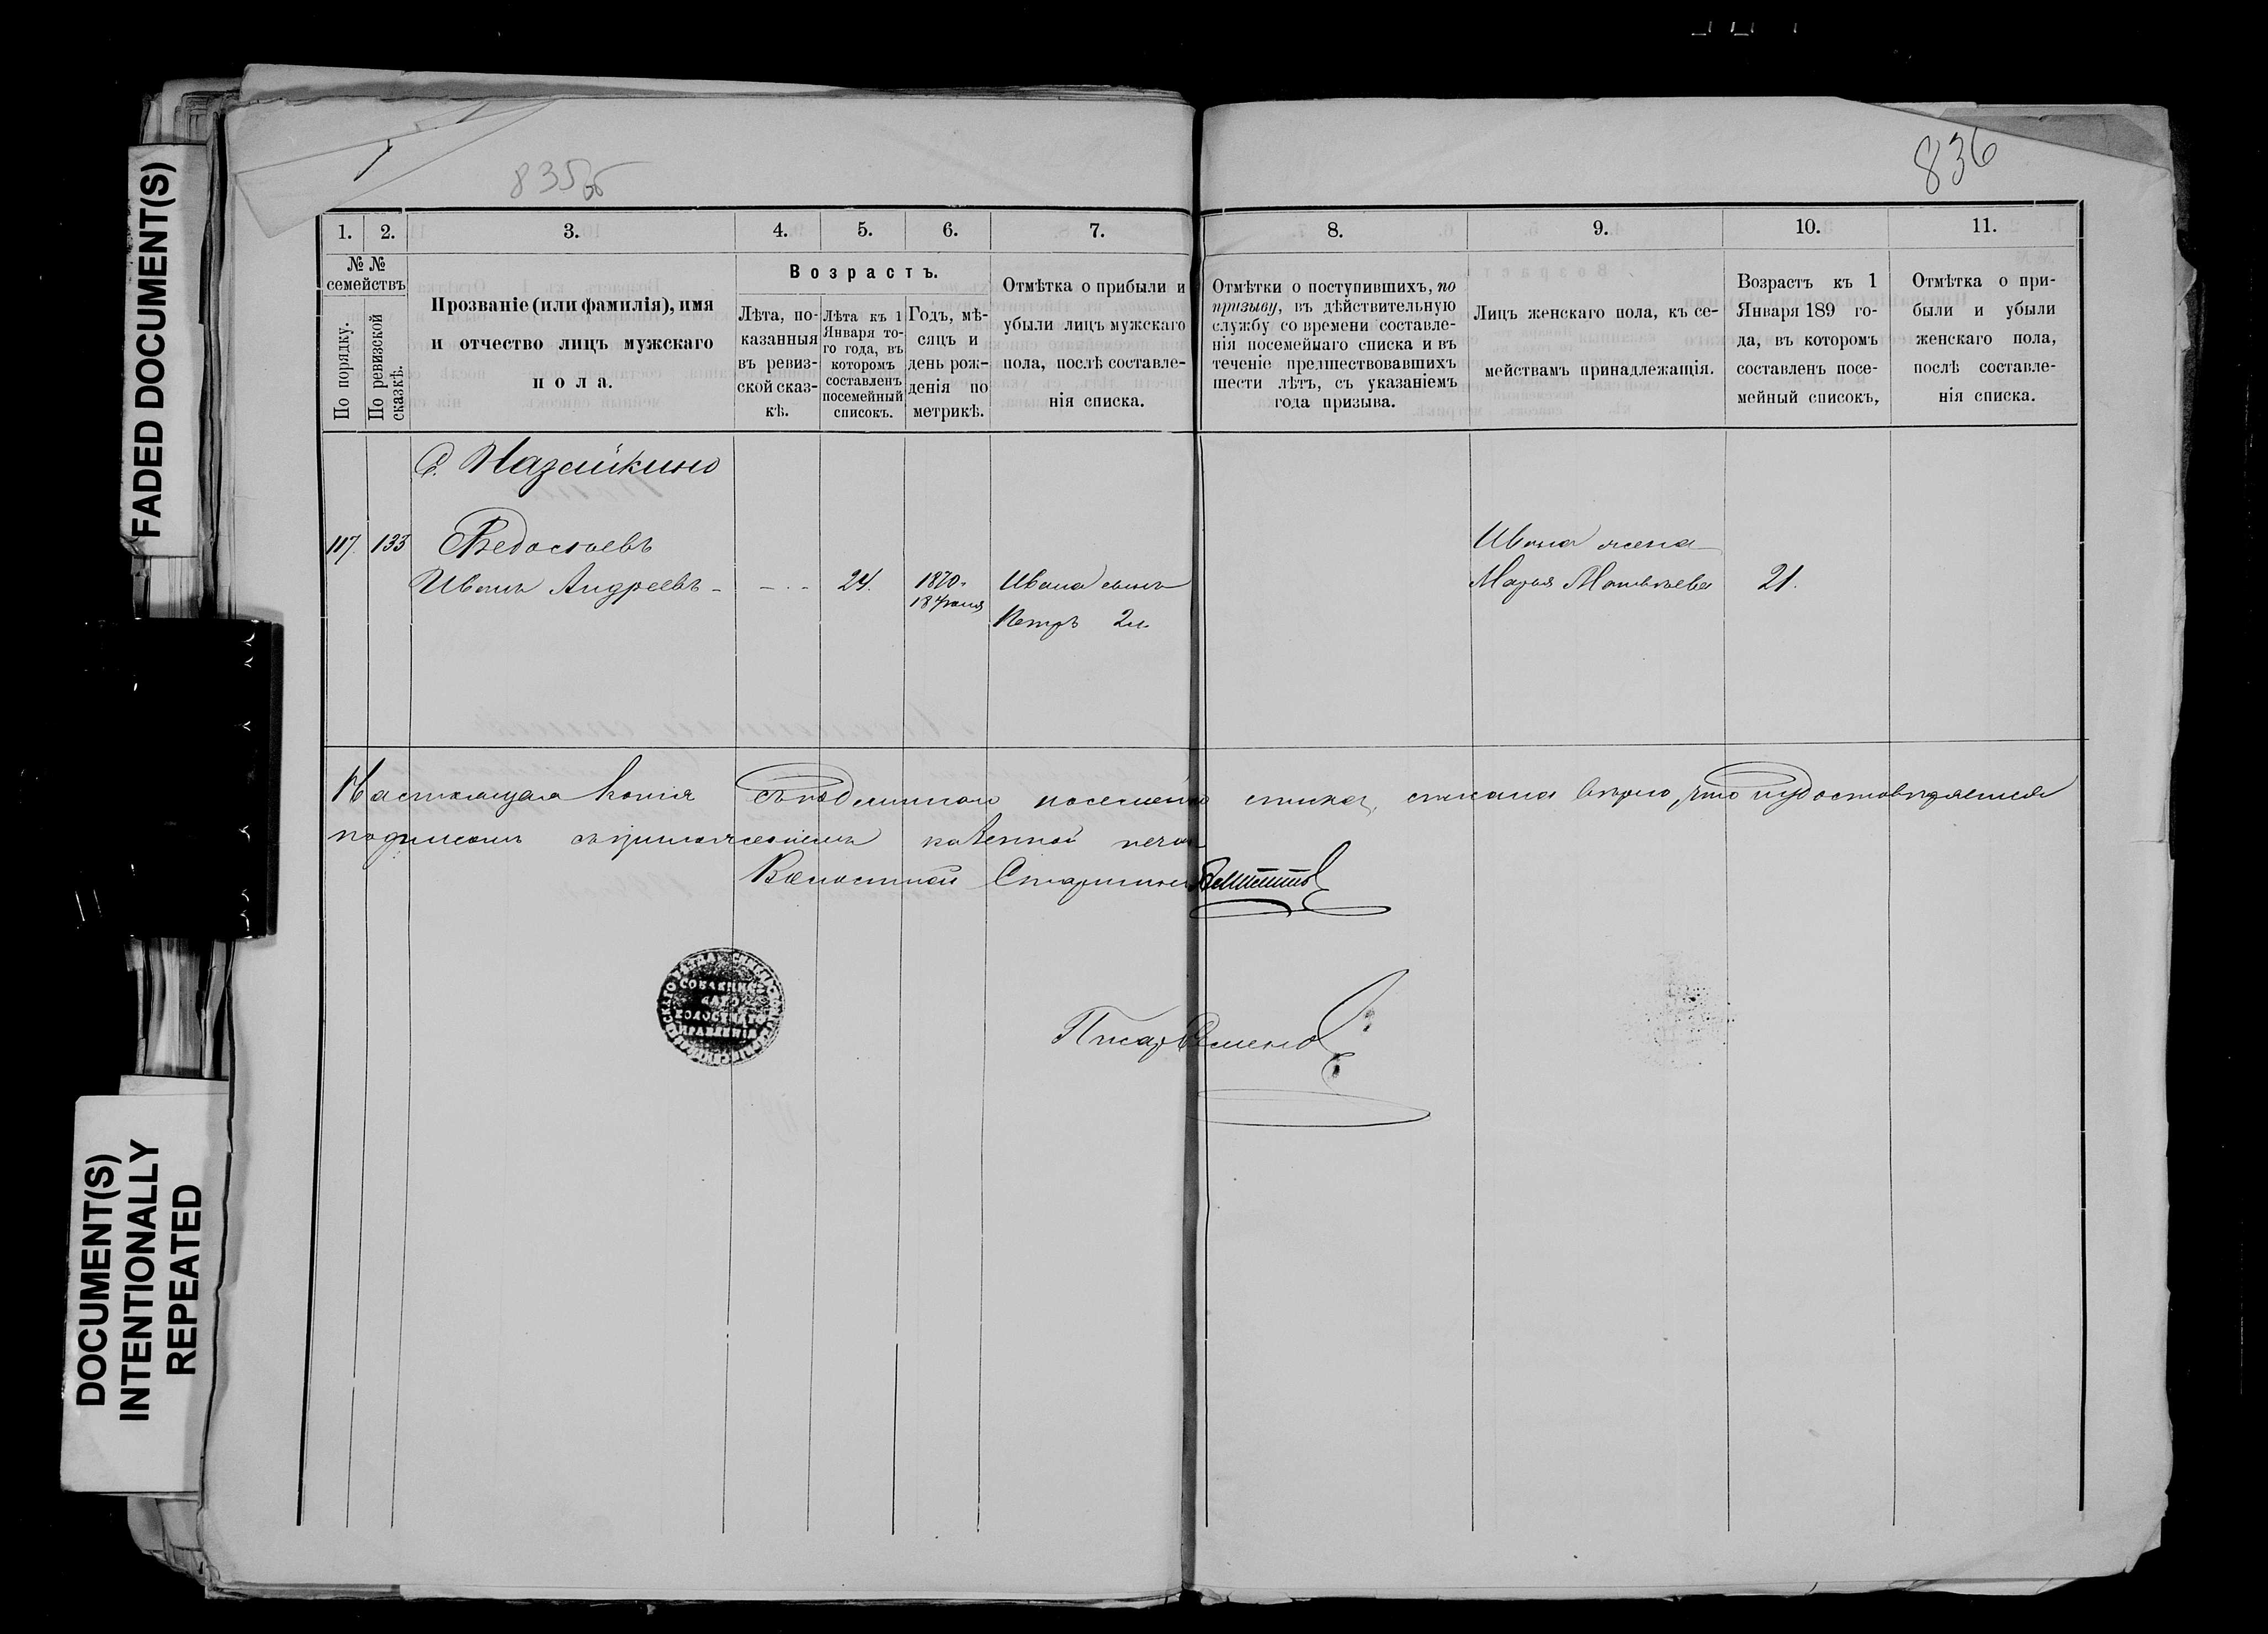 FADED DOCUMENT(S)
DOCUMENT(S)
INTENTIONALLY
REPEATED
835об
836
1. 2. 3. 4. 5. 6. 7. 8. 9. 10. 11.
№ №
семействъ
По порядку.
По ревизской
сказкѣ.
Прозваніе (или фамилія), имя
и отчество лицъ мужскаго
пола.
Возрастъ.
Лѣта, по-
казанныя
въ ревиз-
ской сказ-
кѣ.
Лѣта къ 1
Января то-
го года, въ
которомъ
составленъ
посемейный
списокъ.
Годъ, мѣ-
сяцъ и
день рож-
денія по
метрикѣ.
Отмѣтка о прибыли и
убыли лицъ мужскаго
пола, послѣ составле-
нія списка.
Отмѣтки о поступившихъ, по
призыву, въ дѣйствительную
службу со времени составле-
нія посемейнаго списка и въ
теченіе предшествовавшихъ
шести лѣтъ, съ указаніемъ
года призыва.
Лицъ женскаго пола, къ се-
мействамъ принадлежащія.
Возрастъ къ 1
Января 189 го-
да, въ которомъ
составленъ посе-
мейный списокъ,
Отмѣтка о при-
были и убыли
женскаго пола,
послѣ составле-
нія списка.
с. Назайкино
117. 133 Ѳедосѣевъ
Иванъ Андреевъ 24. 1870
18 Іюня
Ивана сынъ
Петръ 2л.
Ивана жена
Марья Матвѣева 21.
Настоящая копія съ подлиннаго посемейнаго списка, списана вѣрно, что и удостовѣряется
подписомъ съ приложеніемъ казенной печати
Волостной Старшина
Писарь Семенов